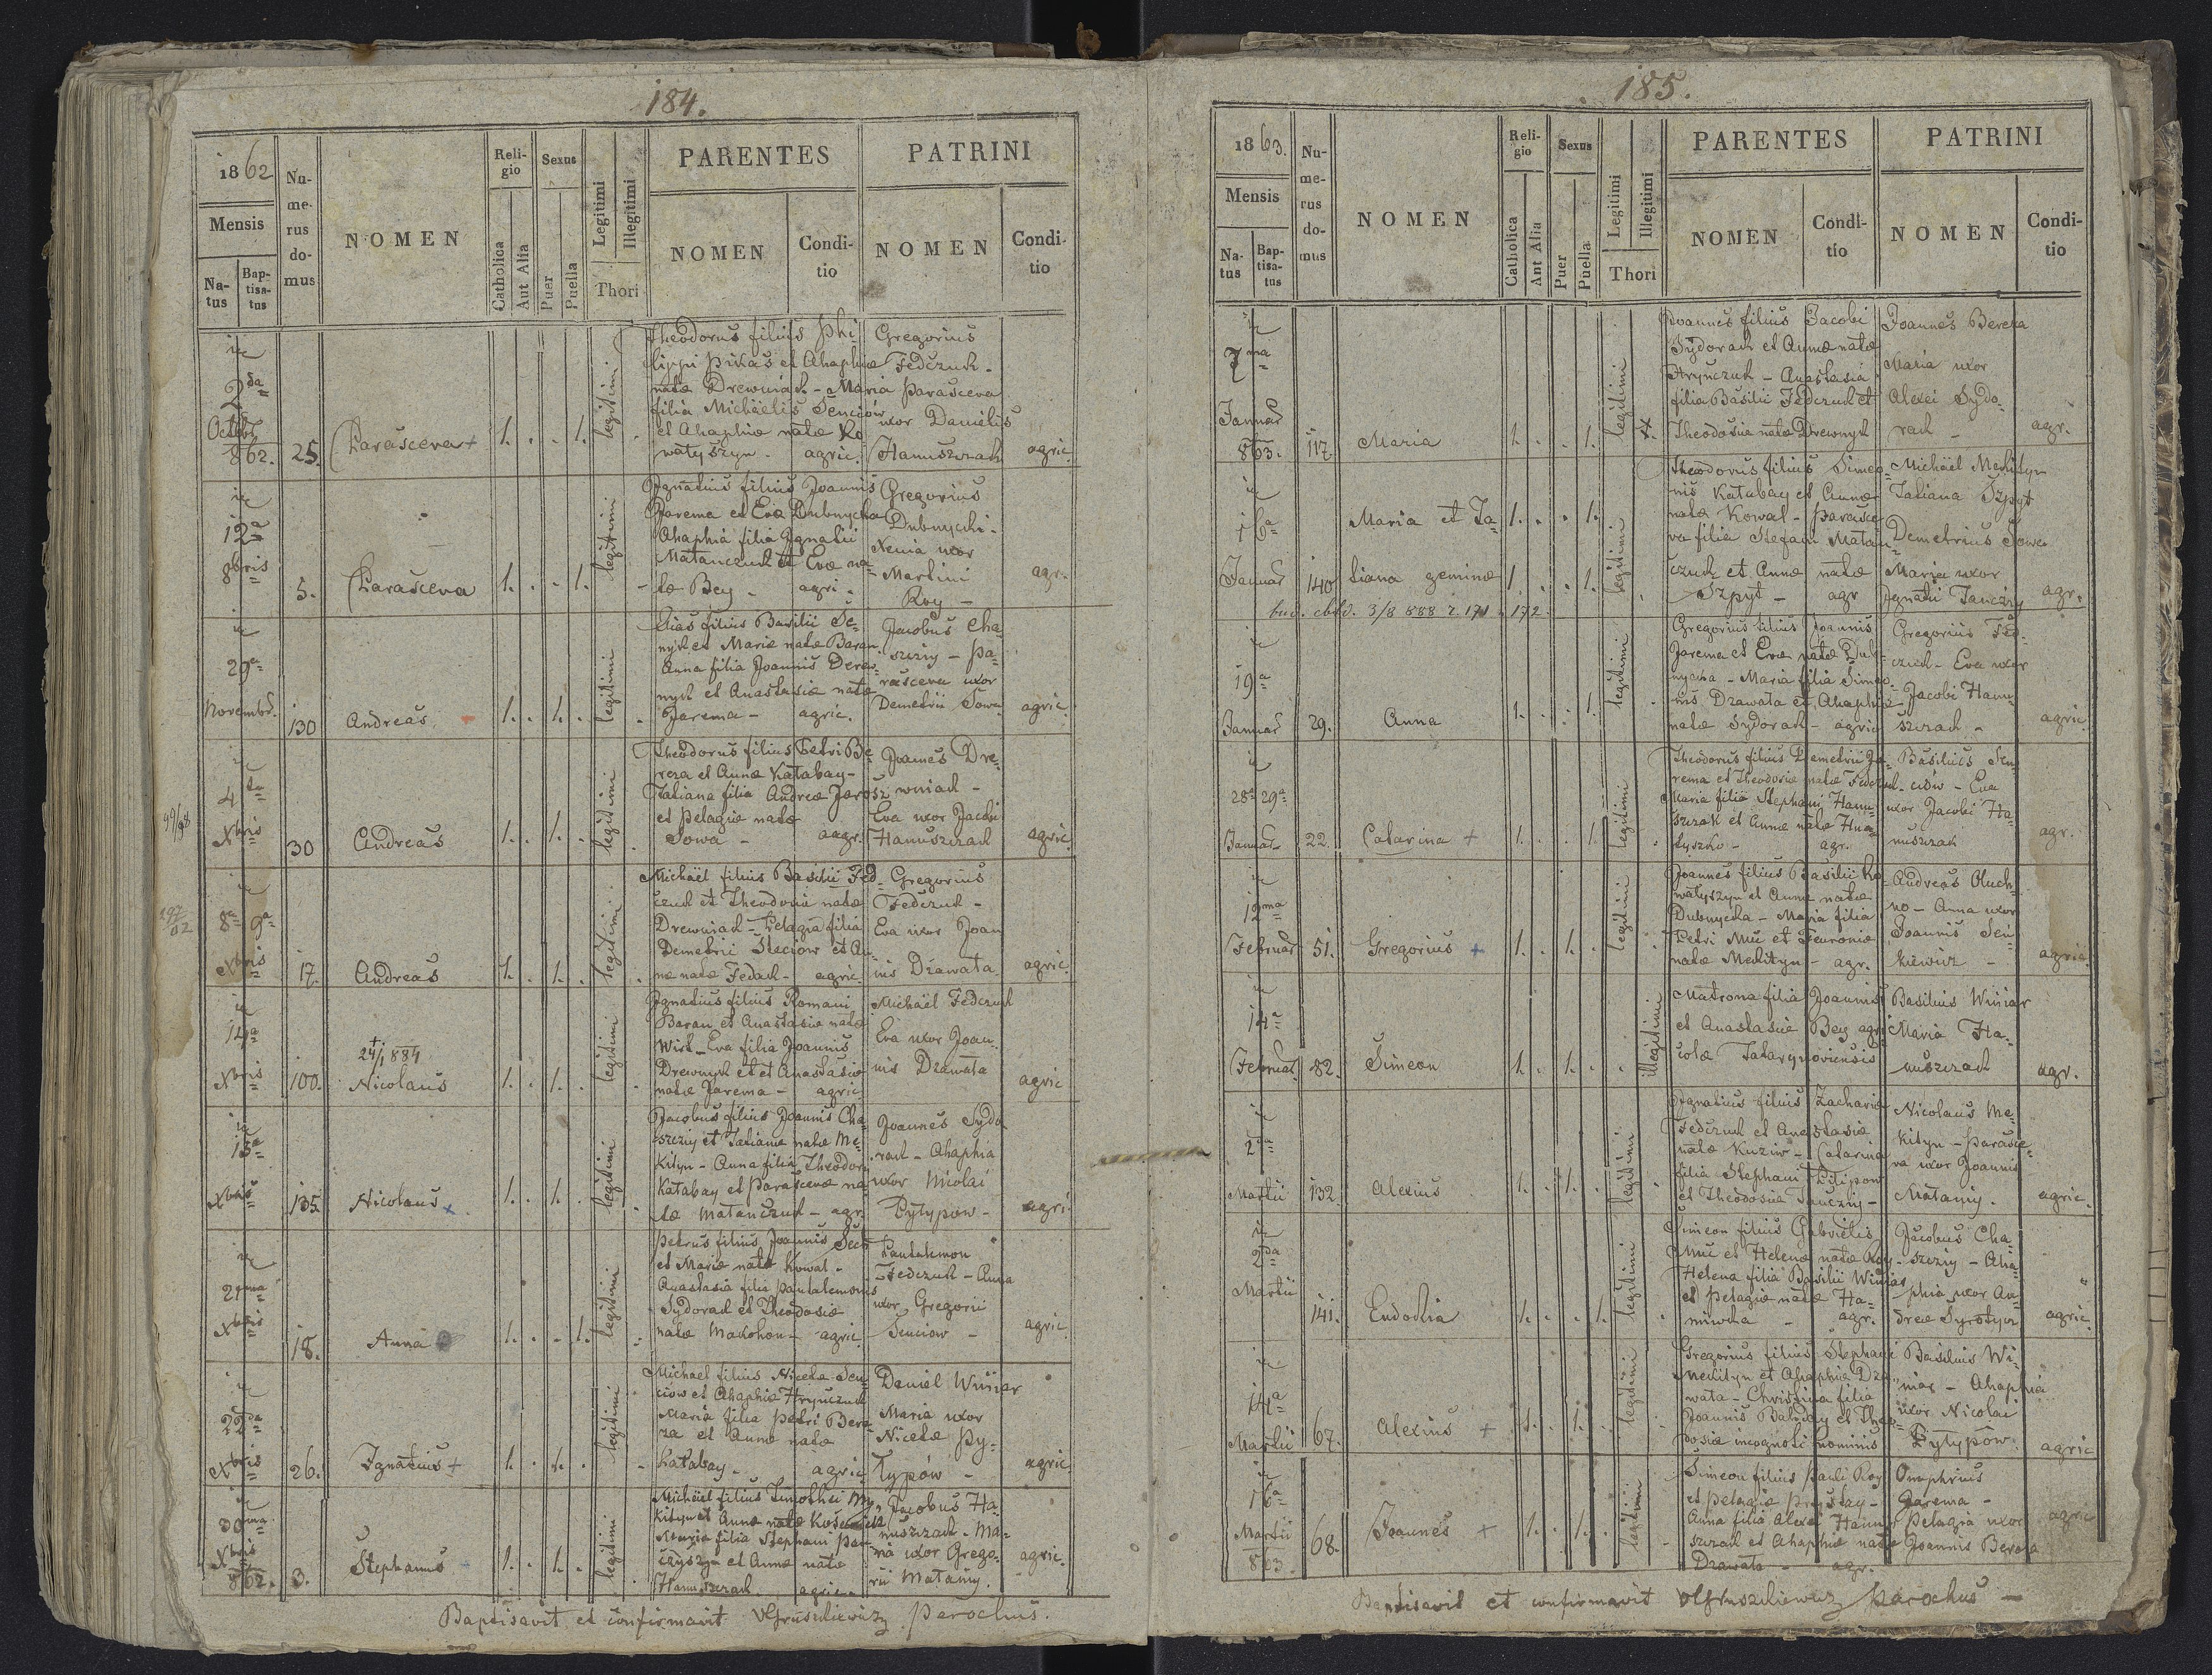 184.
1862
Mensis
Na-
tus
Bap-
tisa-
tus
Nu-
me-
rus
do-
mus
NOMEN
Reli-
gio
Catholica
Aut Alia
Sexus
Puer
Puella
Legitimi
Illegitimi
Thori
PARENTES
NOMEN
Condi-
tio
PATRINI
NOMEN
Condi-
tio
2da
Octobr
862.
25.
Parasceva +
1. . . 1.
legitimi
Theodorus filius Phi-
lippi Pikas et Ahaphiæ
natæ Drewniak - Maria
filia Michaelis Senciów
et Ahaphiæ natæ Ko
wałyszyn. agric.
Gregorius
Fedczuk -
Parasceva
uxor Danielis
Hanuszczak
agric.
12a
8bris
5.
Parasceva
1. . . 1.
legitimi
Ignatius filius Joannis
Jarema et Eva Dubnycka
Ahaphia filia Ignatii
Matanczuk et Evæ na-
tæ Bey - agri.
Gregorius
Dubnycki -
Xenia uxor
Martini
Roy -
agr.
29a
Novembr.
130
Andreas
1. . 1. .
legitimi
Elias filius Basilii Se-
nyk et Mariæ natæ Baran
Anna filia Joannis Derew-
nyk et Anastasiæ natæ
Jarema - agric.
Jacobus Cha-
szczij - Pa-
rasceva uxor
Demetrii Sowa
agric.
99/98
4ta
Xbris
30
Andreas
1. . 1. .
legitimi
Theodorus filius Petri Be-
reza et Annæ Katabay -
Tatiana filia Andreæ Jarosz
et Pelagiæ natæ
Sowa - aagr.
Joannes Dre-
wniak -
Eva uxor Jacobi
Hanuszczak
agric.
8a 9a
Xbris
17.
Andreas
1. . 1. .
legitimi
Michaël filius Basilii Fed-
czuk et Theodosia natæ
Drewniak - Pelagia filia
Demetrii Steciow et An-
næ natæ Fedak - agric.
Gregorius
Fedczuk -
Eva uxor Joan
nis Drawata
agric.
14a
Xbris
100.
24/1 884
Nicolaus
1. . 1. .
legitimi
Ignatius filius Romani
Baran et Anastasiæ natæ
Wirt - Eva filia Joannis
Drewnyk et et Anastasiæ
natæ Jarema - agric
Michaël Fedczuk
Eva uxor Joan-
nis Drawata
agric
15a
Xbris
135.
Nicolaus x
1. . 1. .
legitimi
Jacobus filius Joannis Cha-
szczij et Tatianæ natæ Me-
kityn - Anna filia Theodori
Katabay et Parascevæ na-
tæ Matanczuk - agr.
Joannes Sydo
rak - Ahaphia
uxor Nicolai
Pytypow -
agri.
21ma
Xbris
18.
Anna
1. . . 1.
legitimi
Petrus filius Joannis Sech
et Mariæ natæ Kowal -
Anastasia filia Pantalemonis
Sydorak et Theodosiæ
natæ Makohon - agric
Pantalemon
Fedczuk - Anna
uxor Gregorii
Senciow -
agric.
22da
Xbris
26.
Ignatius +
1. . 1. .
legitimi
Michael filius Nicetæ Sen-
ciow et Ahaphiæ Hryńczuk
Maria filia Petri Bere-
za et Annæ natæ
Katabay - agric
Daniel Winiar
Maria uxor
Nicetæ Py-
typów -
agric.
30ma
Xbris
862.
3.
Stephanus
1. . 1. .
legitimi
Michael filius Timothei Me-
kityn et Annæ natæ
Maria filia Stephani
et Annæ natæ
Hanuszczak agric.
Jacobus Ha-
nuszczak - Ma-
ria uxor Grego-
rii Matanij.
agric.
Baptisavit et confirmavit Parochus.
185.
1863.
Mensis
Na-
tus
Bap-
tisa-
tus
Nu-
me-
rus
do-
mus
NOMEN
Reli-
gio
Catholica
Aut Alia
Sexus
Puer
Puella
Legitimi
Illegitimi
Thori
PARENTES
NOMEN
Condi-
tio
PATRINI
NOMEN
Condi-
tio
7ma
Januar
863.
117.
Maria
1. . . 1.
legitimi
Joannes filius Jacobi
Sydorak et Annæ natæ
Hryńczuk - Anastasia
filia Basilii Fedczuk et
Theodosiæ natæ Drewnyk
Joannes Bereza
Maria uxor
Alexei Sydo-
rak -
agr.
16a
Januar
140
Maria et Ta-
tiana geminæ
1. . . 1.
1. . . 1.
legitimi
Theodorus filius Simeo-
nis Katabay et Annæ
natæ Kowal - Parasce
va filia Stefani Matan-
czuk et Annæ natæ
Szpyt - agr
Michäel Mekityn
Tatiana Szpyt
Demetrius Sowa
Maria uxor
Ignatii Janczij
agr.
3/8 888 r. 171 172
19a
Januar
29.
Anna
1. . . 1.
legitimi
Gregorius filius Joannis
Jarema et Evæ natæ Dub-
nycka - Maria filia Simeo-
nis Drawata et Ahaphiæ
natæ Sydorak - agric
Gregorius Fed-
czuk - Eva uxor
Jacobi Hanu
szczak -
agric
28a 29a
Januar
22.
Catarina +
1. . . 1.
legitimi
Theodorus filius Demetrii Ja-
rema et Theodosiæ natæ Fedczuk
Maria filia Stephani Hanu-
szczak et Annæ natæ Hna-
tyszko - agr.
Basilius Sen-
ciów - Eva
uxor Jacobi Ha-
nuszczak
agr.
12ma
Februar
51.
Gregorius +
1. . 1. .
legitimi
Joannes filius Basilii Ko-
wałyszyn et Annæ natæ
Dubnycka - Maria filia
Petri Muc et Fevroniæ
natæ Mekityn - agr.
Andreas Oluch-
no - Anna uxor
Joannis Sen-
kiewicz -
agric.
14a
Februar.
82.
Simeon
1. . 1. .
illegitimi
Matrona filia Joannis
et Anastasiæ Bey agri
colæ Tatarynoviensis
Basilius Winiar
Maria Ha-
nuszczak
agr.
2da
Martii
132.
Alexius
1. . 1. .
legitimi
Ignatius filius Zachariæ
Fedczuk et Anastasiæ
natæ Kuziw - Catarina
filia Stephani Pilipow
et Theodosiæ Janczij -
Nicolaus Me-
kityn - Parasce-
va uxor Joannis
Matanij.
agric.
2da
Martii
141.
Eudochia
1. . . 1.
legitimi
Simeon filius Gabrielis
Muc et Helenæ natæ Roy -
Helena filia Basilii Winiar
et Pelagiæ natæ Ha-
niwka - agr.
Jacobus Cha-
szczij - Aha-
phia uxor An-
dreæ Syrotyez
agric.
14a
Martii
67.
Alexius +
1. . 1. .
legitimi
Gregorius filius Stephani
Mekityn et Ahaphiæ Dra
wata - Christina filia
Joannis Balyday et Theo-
dosiæ incogniti nominis
Basilius Wi-
niar - Ahaphia
uxor Nicolai
Pytypów.
agric
16a
Martii
863
68.
Joannes +
1. . 1. .
legitimi
Simeon filius Pauli Roy
et Pelagiæ Prystay -
Anna filia Alexei Hanu-
szczak et Ahaphiæ natæ
Drawata - agr.
Onuphrius
Jarema -
Pelagia uxor
Joannis Bereza
agric
Baptisavit et confirmavit Parochus -